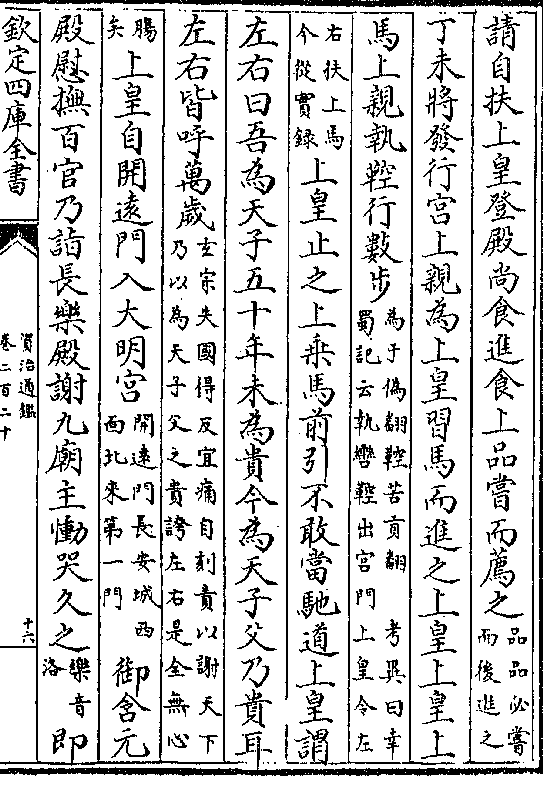 請自扶上皇登殿尚食進食上品嘗而薦之品品必嘗而後進之
丁未將發行宮上親為上皇習馬而進之上皇上皇上
馬上親執鞚行數步為于偽翻鞚苦貢翻考異曰幸蜀記云執轡鞚出宮門上皇令左
右扶上馬今從實錄上皇止之上乘馬前引不敢當馳道上皇謂
左右曰吾為天子五十年未為貴今為天子父乃貴耳
左右皆呼萬歲玄宗失國得反宜痛自刻責以謝天下乃以為天子父之貴誇左右是全無心
腸矣上皇自開遠門入大明宮開遠門長安城西西北來第一門御含元
殿慰撫百官乃詣長樂殿謝九廟主慟哭久之樂音洛即
欽定四庫全書
資治通鑑
卷二百二十
十六